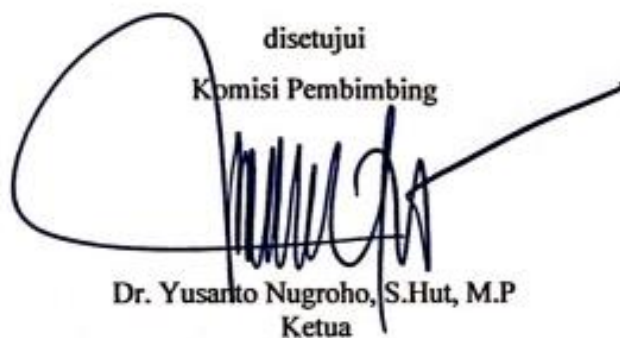 disetujui
Komisi Pembimbing
Dr. Yusanto Nugroho, S.Hut, M.P
Ketua